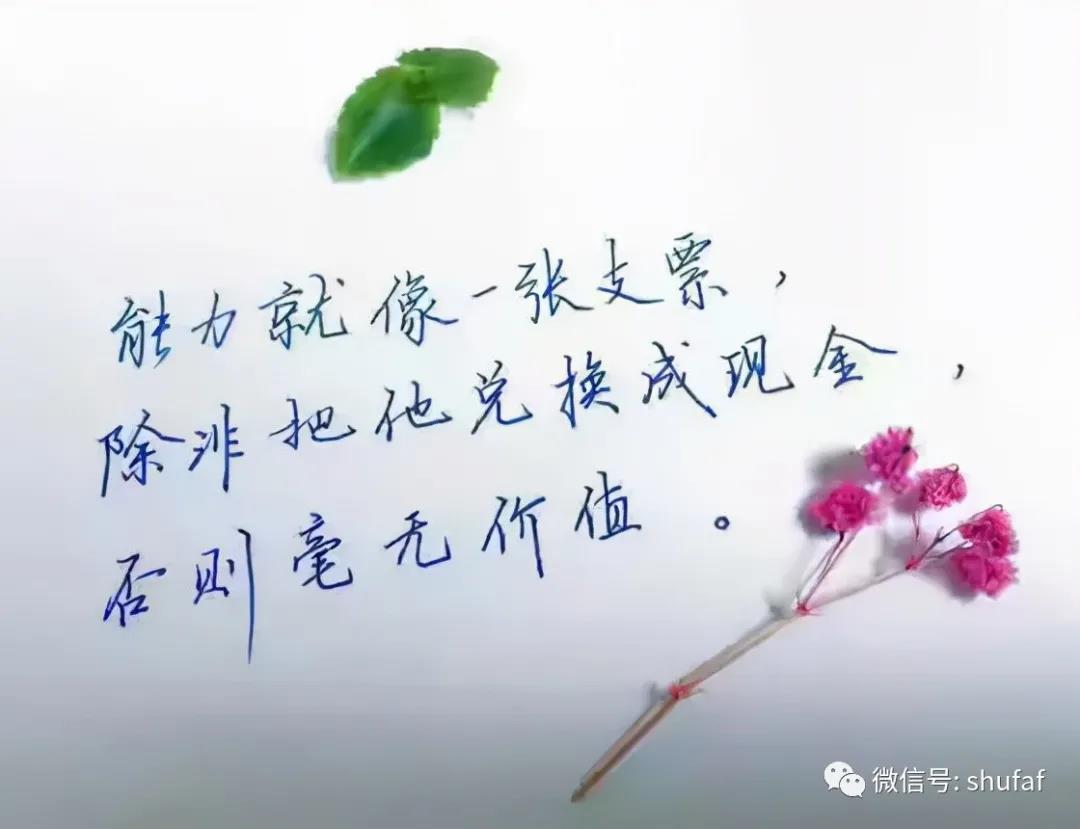 能力就像一张支票，
除非把他兑换成现金，
否则毫无价值。
微信号: shufaf